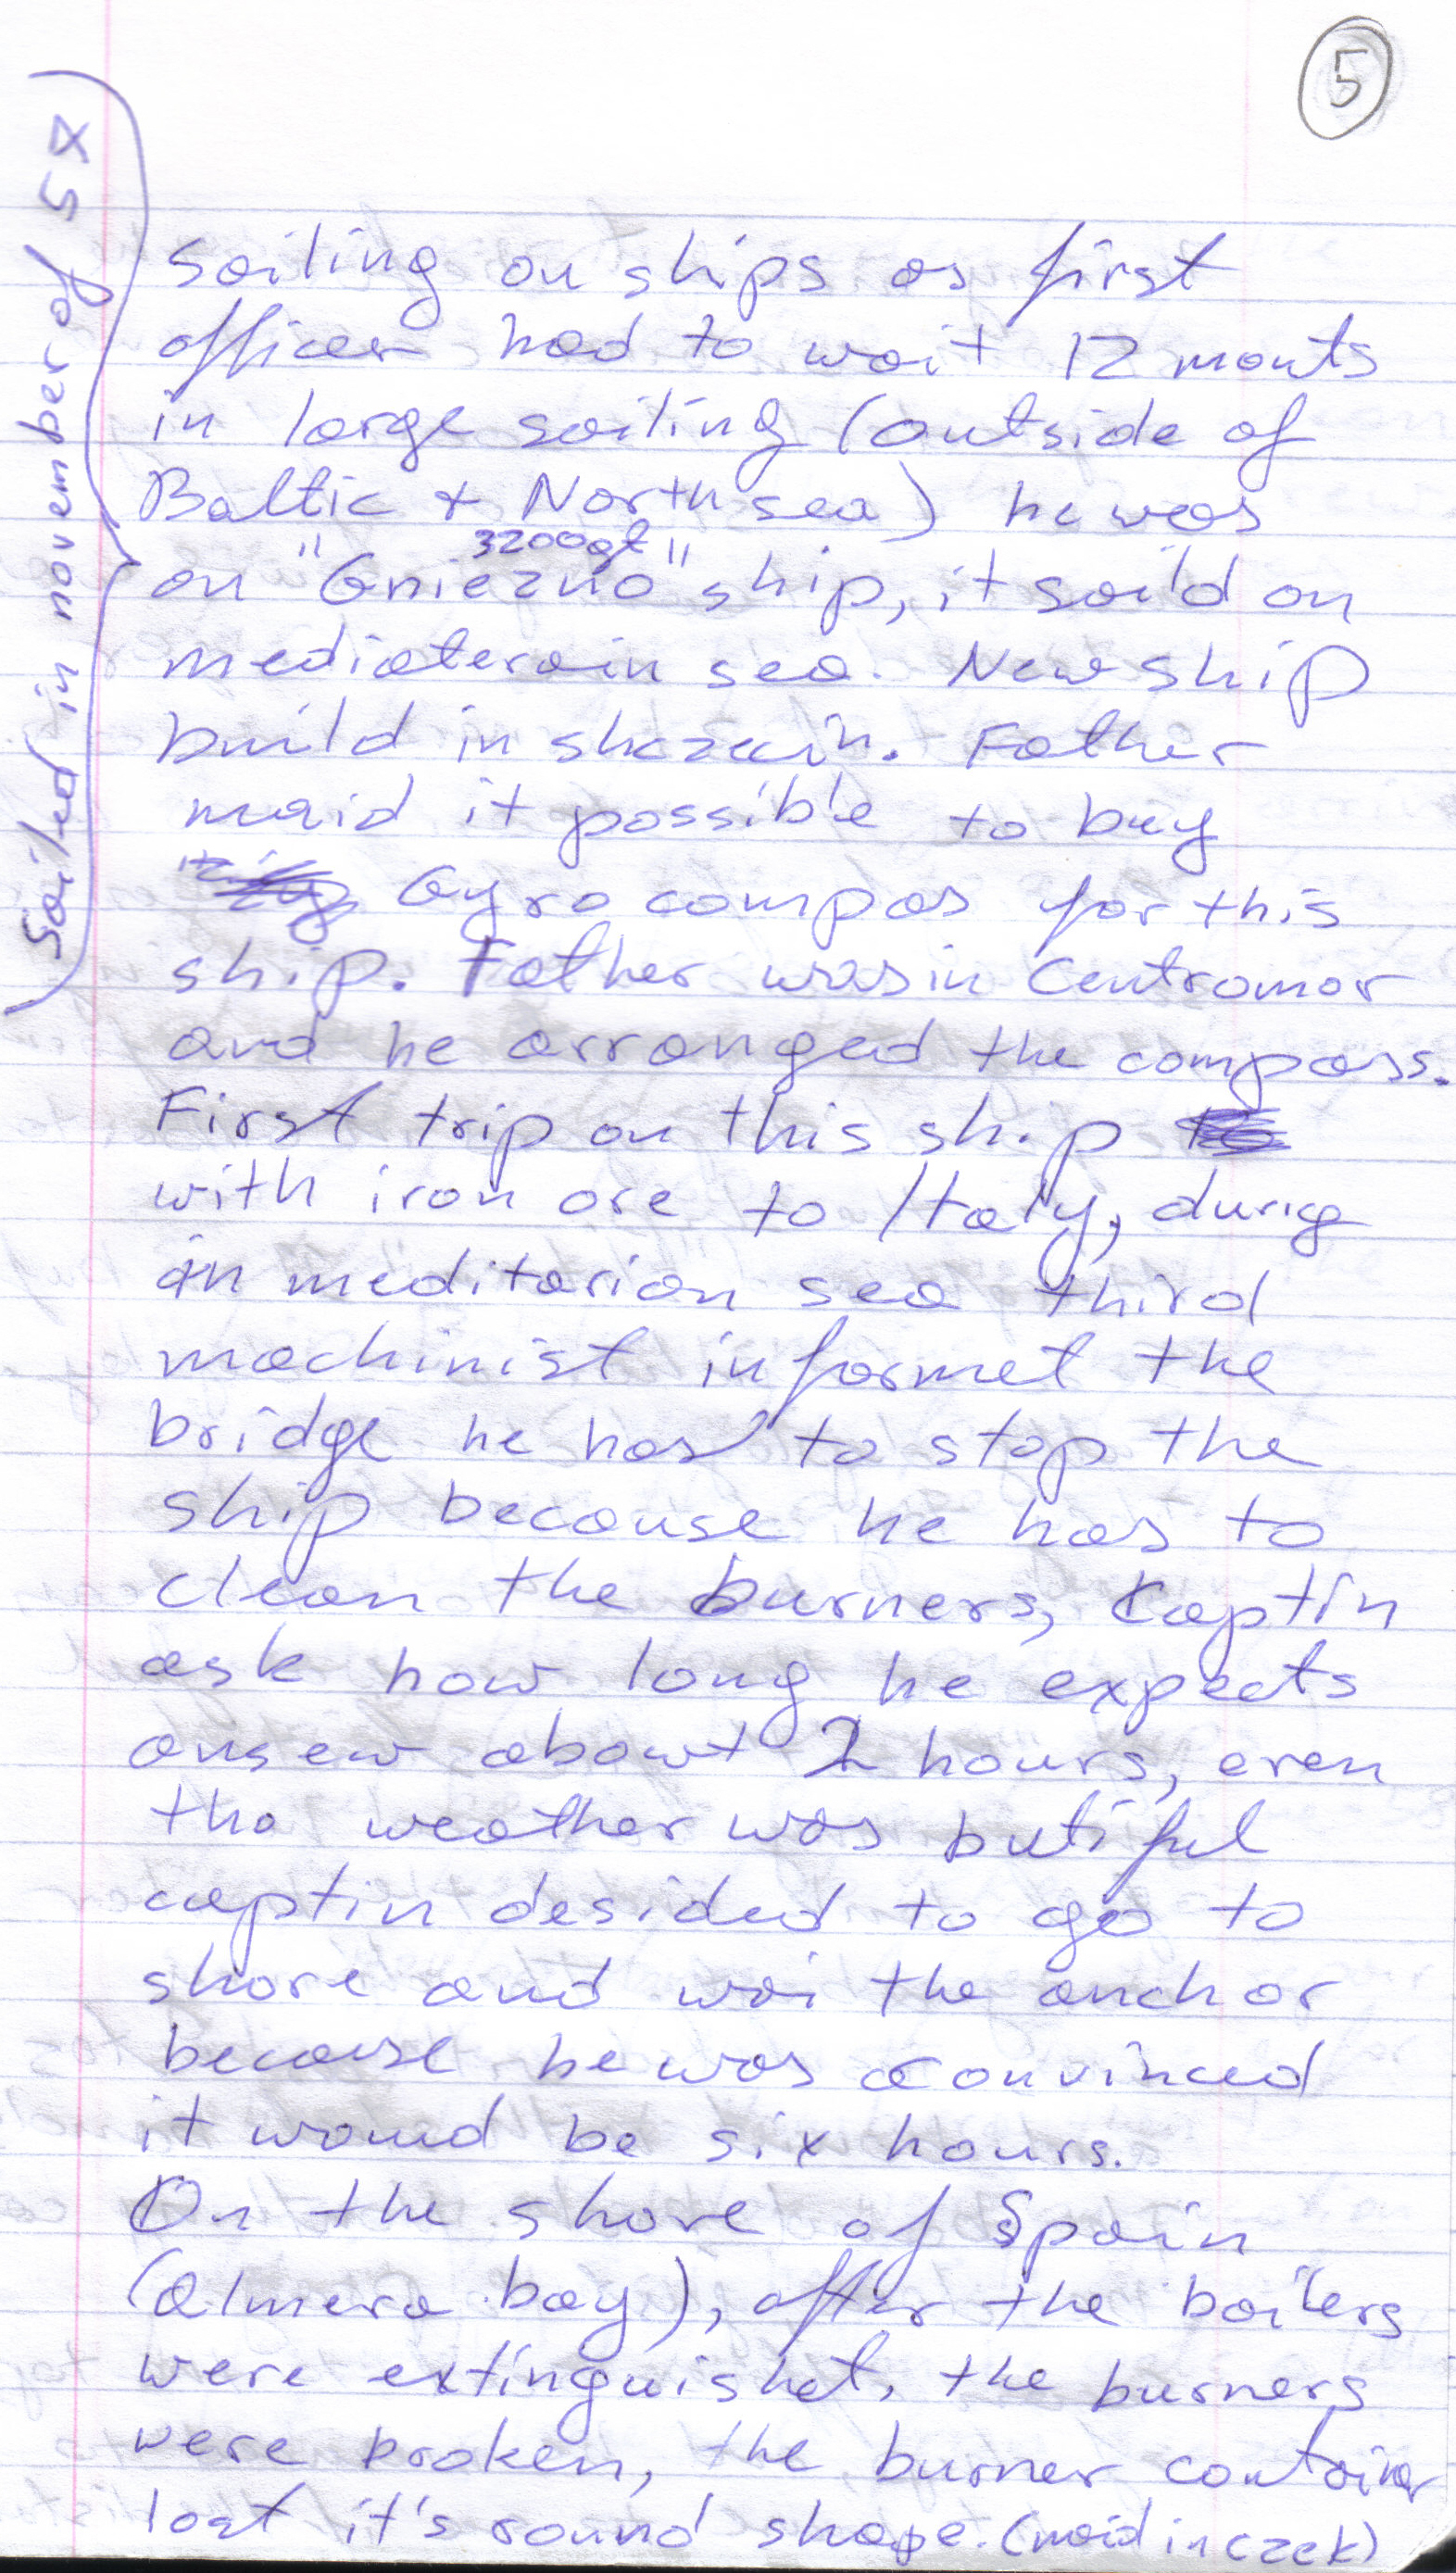 5
Sailed in november of 5X
Sailing on ships as first
officer had to wait 12 monts
in large sailing (outside of
Baltic + North sea) he was
3200gt
on "Gniezno" ship, it saild on
mediaterain sea. New ship
build in shczecin. Father
maid it possible to buy
Gyro compas for this
ship. Father was in Centromor
and he arranged the compass.
First trip on this ship
with iron ore to Italy, durig
in meditarian sea third
machinist informet the
bridge he has to stop the
ship because he has to
clean the burners, Captin
ask how long he expects
ansew about 2 hours, even
tho weather was butiful
captin desided to go to
shore and wai the anchor
because he was convinced
it would be six hours.
On the shore of Spain
(almera bay), after the boilers
were extinguishet, the burners
were broken, the burner container
lost it's round shape. (maid in czek)